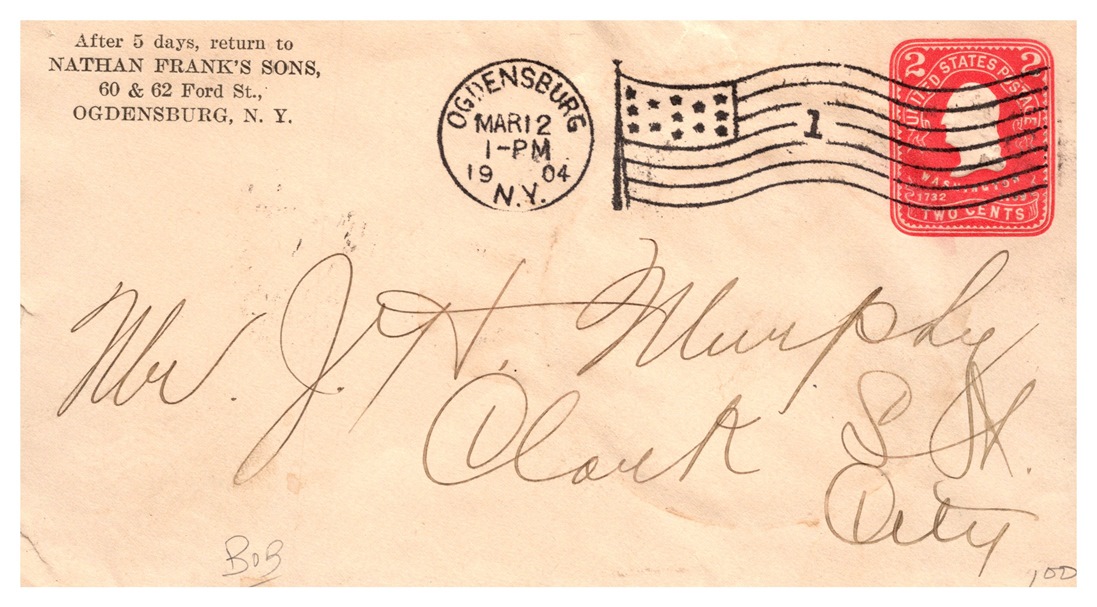 After 5 days, return to
NATHAN FRANK'S SONS,
60 & 62 Ford St.,
OGDENSBURG, N. Y.
OGDENSBURG
MAR 12
1-PM
19 04
N.Y.
1
2 2
UNITED STATES POSTAGE
WASHINGTON
1732
TWO CENTS
Mr. J. H. Murphy
Clark St.
City
BOB
1.00